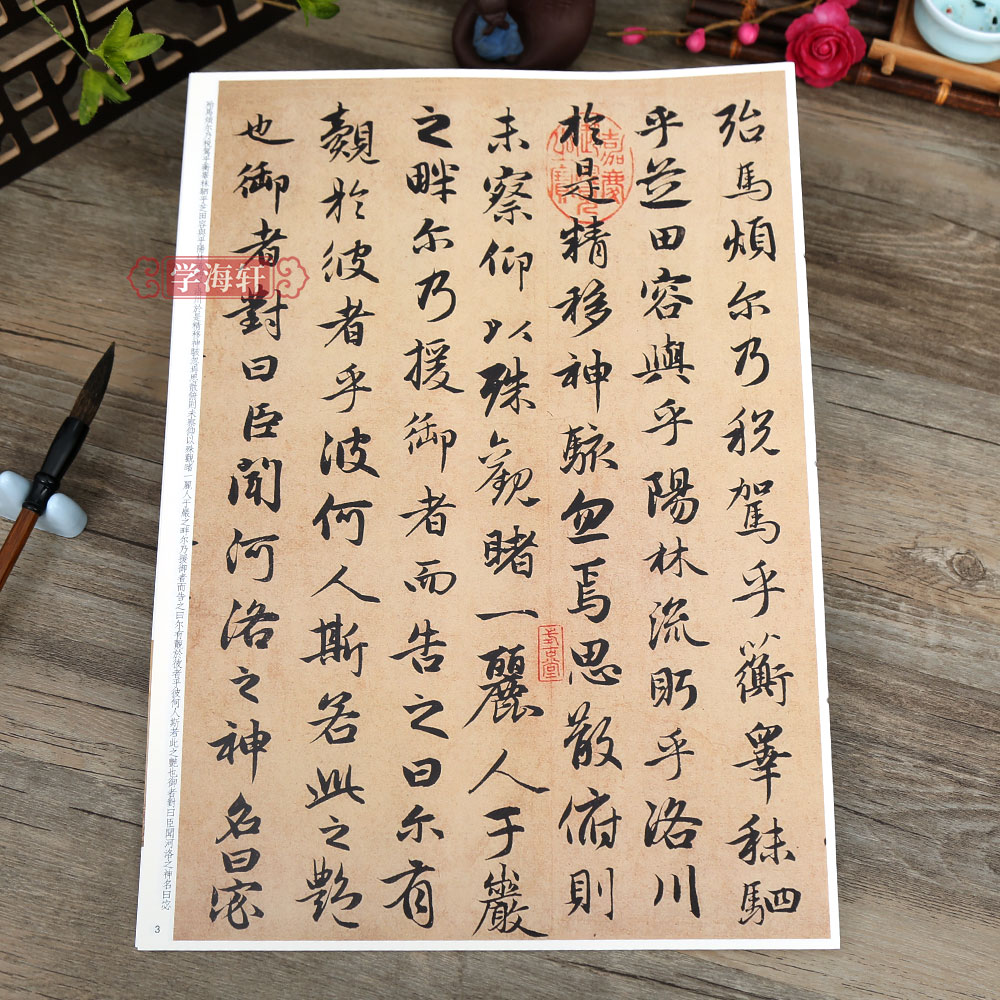 殆馬煩尔乃税駕乎蘅皋秣駟
乎芝田容與乎陽林流眄乎洛川
於是精移神駭忽焉思散俯則
未察仰以殊觀睹一麗人于巖
之畔尔乃援御者而告之曰尔有
覿於彼者乎彼何人斯若此之艷
也御者對曰臣聞河洛之神名曰宓
嘉慶
学海轩
殆馬煩尔乃税駕乎蘅皋秣駟乎芝田容與乎陽林於是精移神駭忽焉思散俯則未察仰以殊觀睹一麗人于巖之畔尔乃援御者而告之曰尔有覿於彼者乎彼何人斯若此之艷也御者對曰臣聞河洛之神名曰宓
3